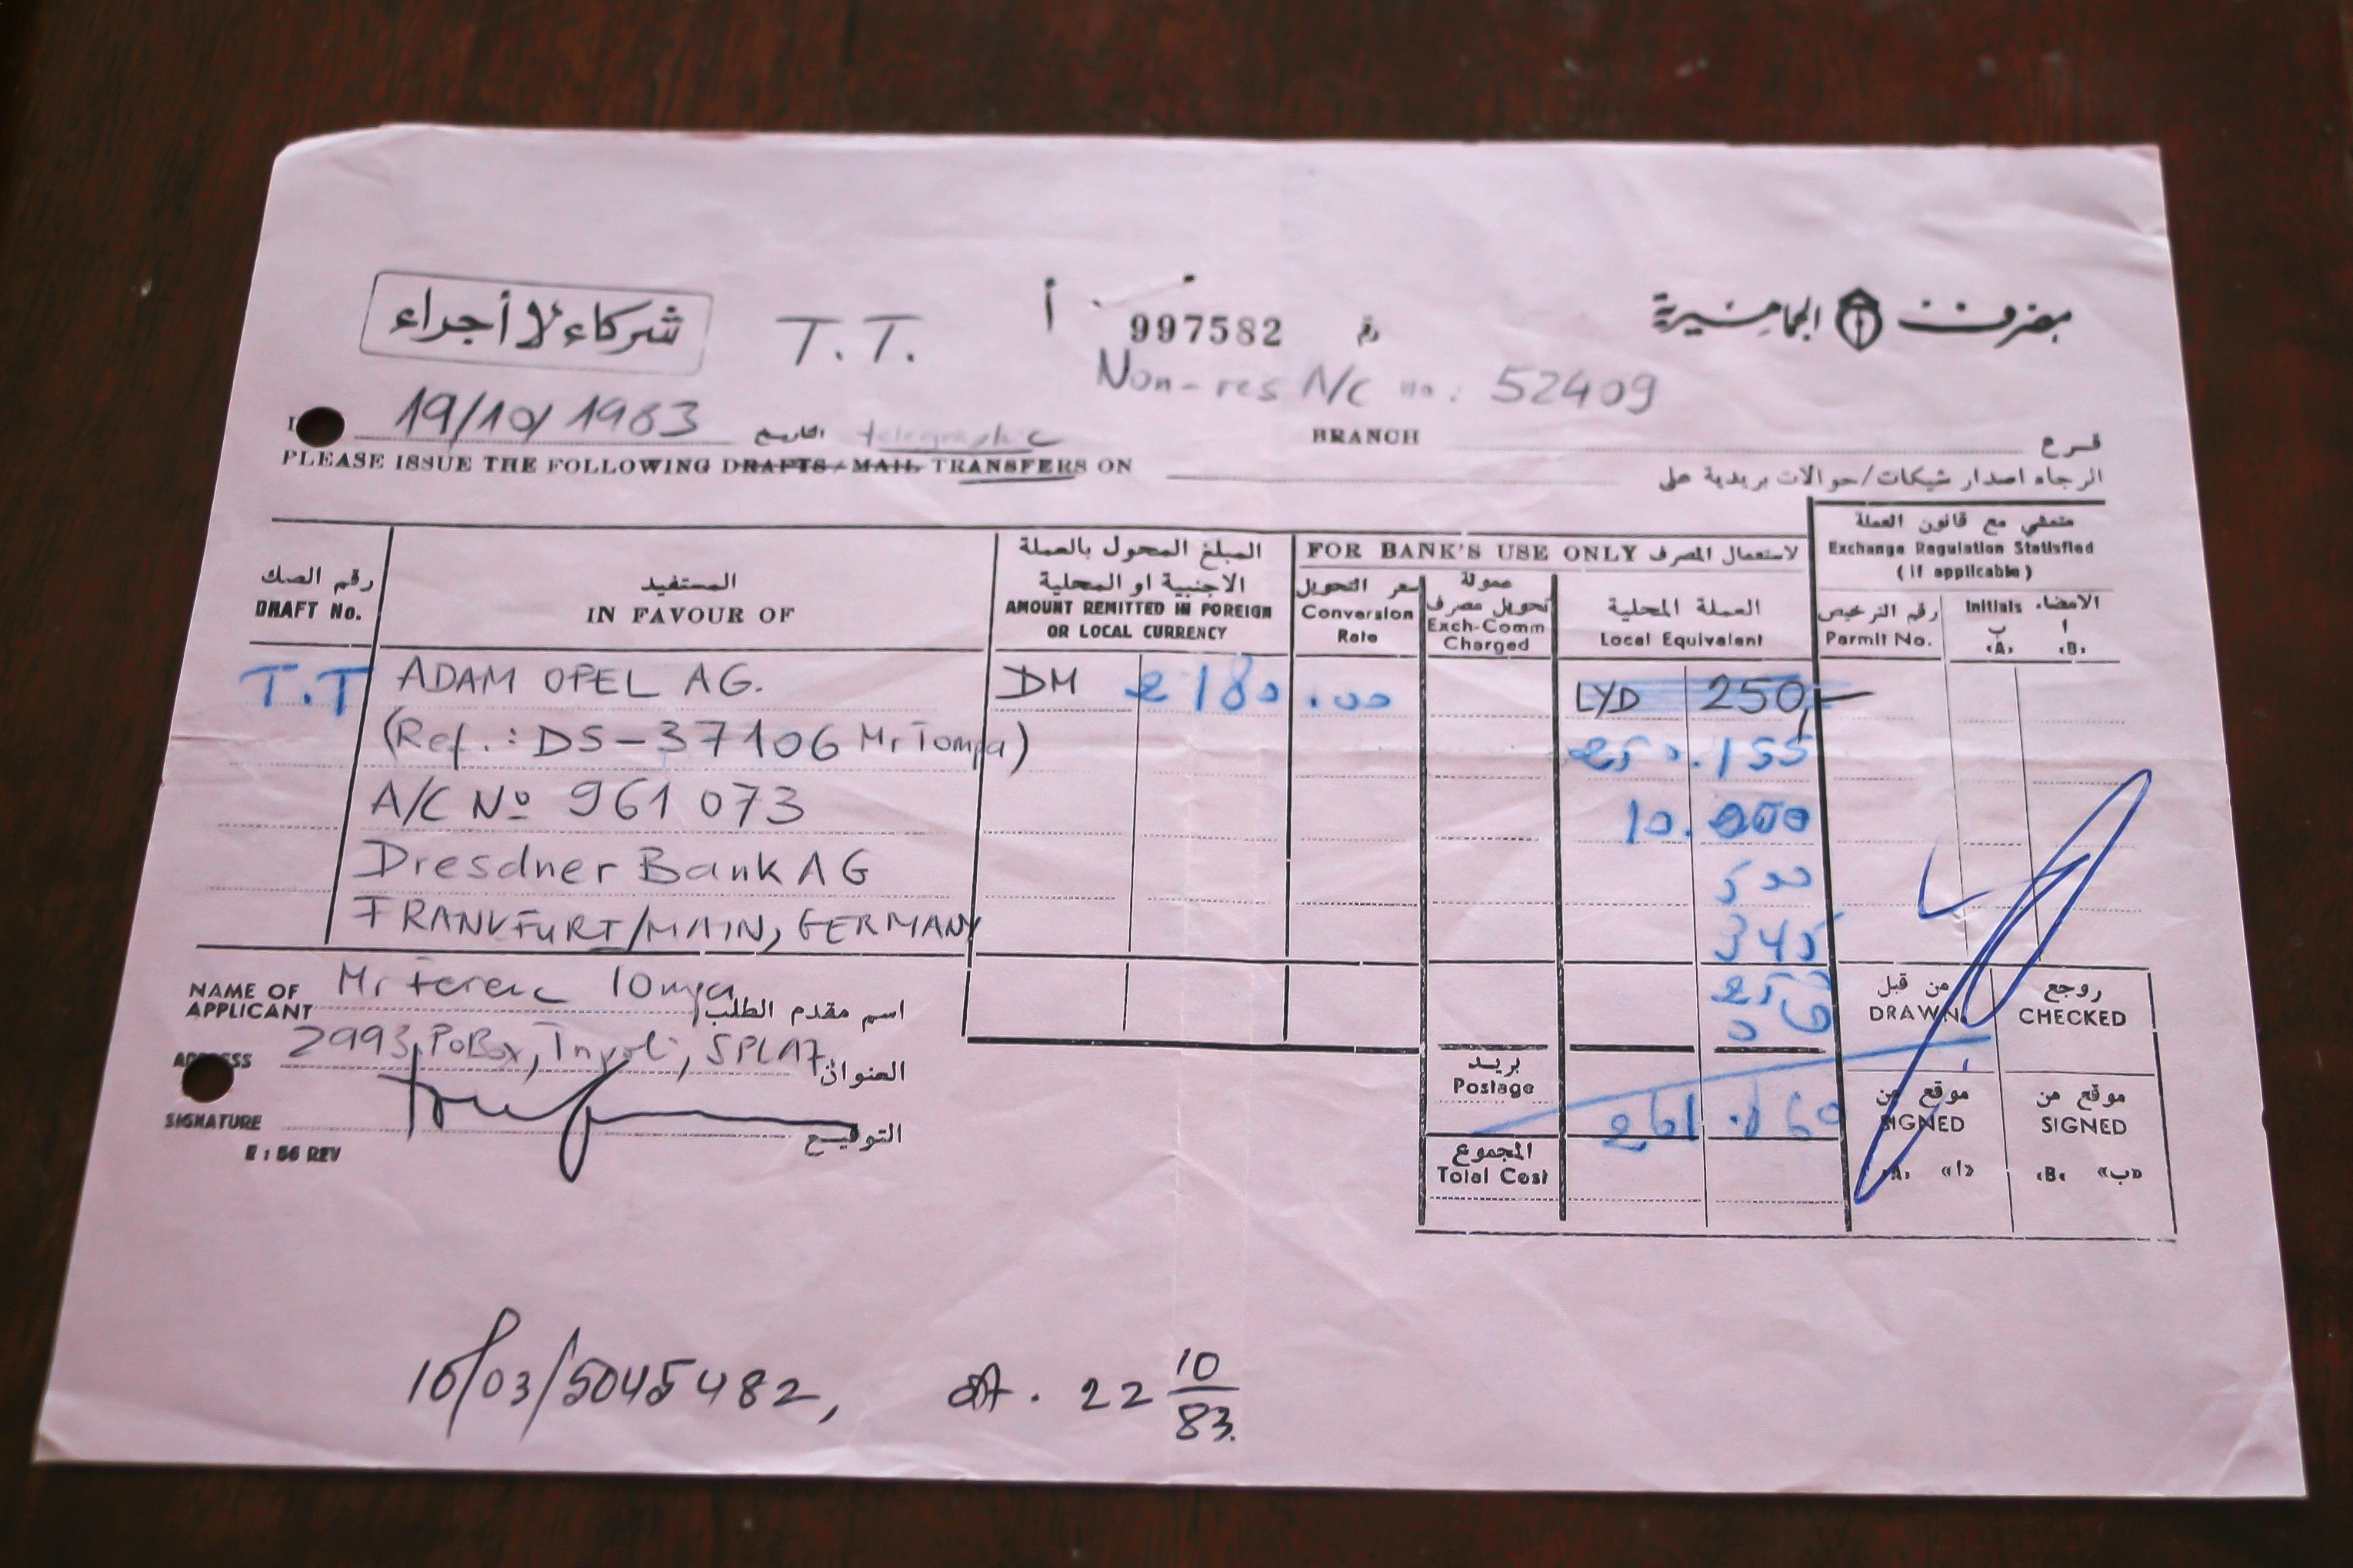 مصرف الجماهيرية
شركاء لا أجراء
T.T.
أ 997582 رقم
Non-res A/C no: 52409
19/10/1983 التاريخ
telegraphic
BRANCH فرع
PLEASE ISSUE THE FOLLOWING DRAFTS / MAIL TRANSFERS ON
الرجاء اصدار شيكات/حوالات بريدية على
رقم الصك
DRAFT No.
المستفيد
IN FAVOUR OF
المبلغ المحول بالعملة
الاجنبية او المحلية
AMOUNT REMITTED IN FOREIGN
OR LOCAL CURRENCY
FOR BANK'S USE ONLY لاستعمال المصرف
سعر التحويل
Conversion
Rate
عمولة
تحويل مصرف
Exch-Comm
Charged
العملة المحلية
Local Equivalent
متمشي مع قانون العملة
Exchange Regulation Statisfied
(if applicable)
رقم الترخيص
Permit No.
Initials الامضاء
ب أ
‹A› ‹B›
T.T ADAM OPEL AG. DM 2180.00 LYD 250,-
(Ref.: DS-37106 Mr Tompa) 250.155
A/C No 961 073 10.000
Dresdner Bank AG 500
FRANKFURT/MAIN, GERMANY 345
250
NAME OF
APPLICANT Mr Ferenc Tompa اسم مقدم الطلب
2993 PoBox, SPLAJ العنوان
SIGNATURE التوقيع
E : 56 REV
بريد
Postage
المجموع
Total Cost
من قبل
DRAWN
روجع
CHECKED
موقع من
SIGNED
‹A› «ا»
موقع من
SIGNED
‹B› «ب»
16/03/5045482, 22 10/83.